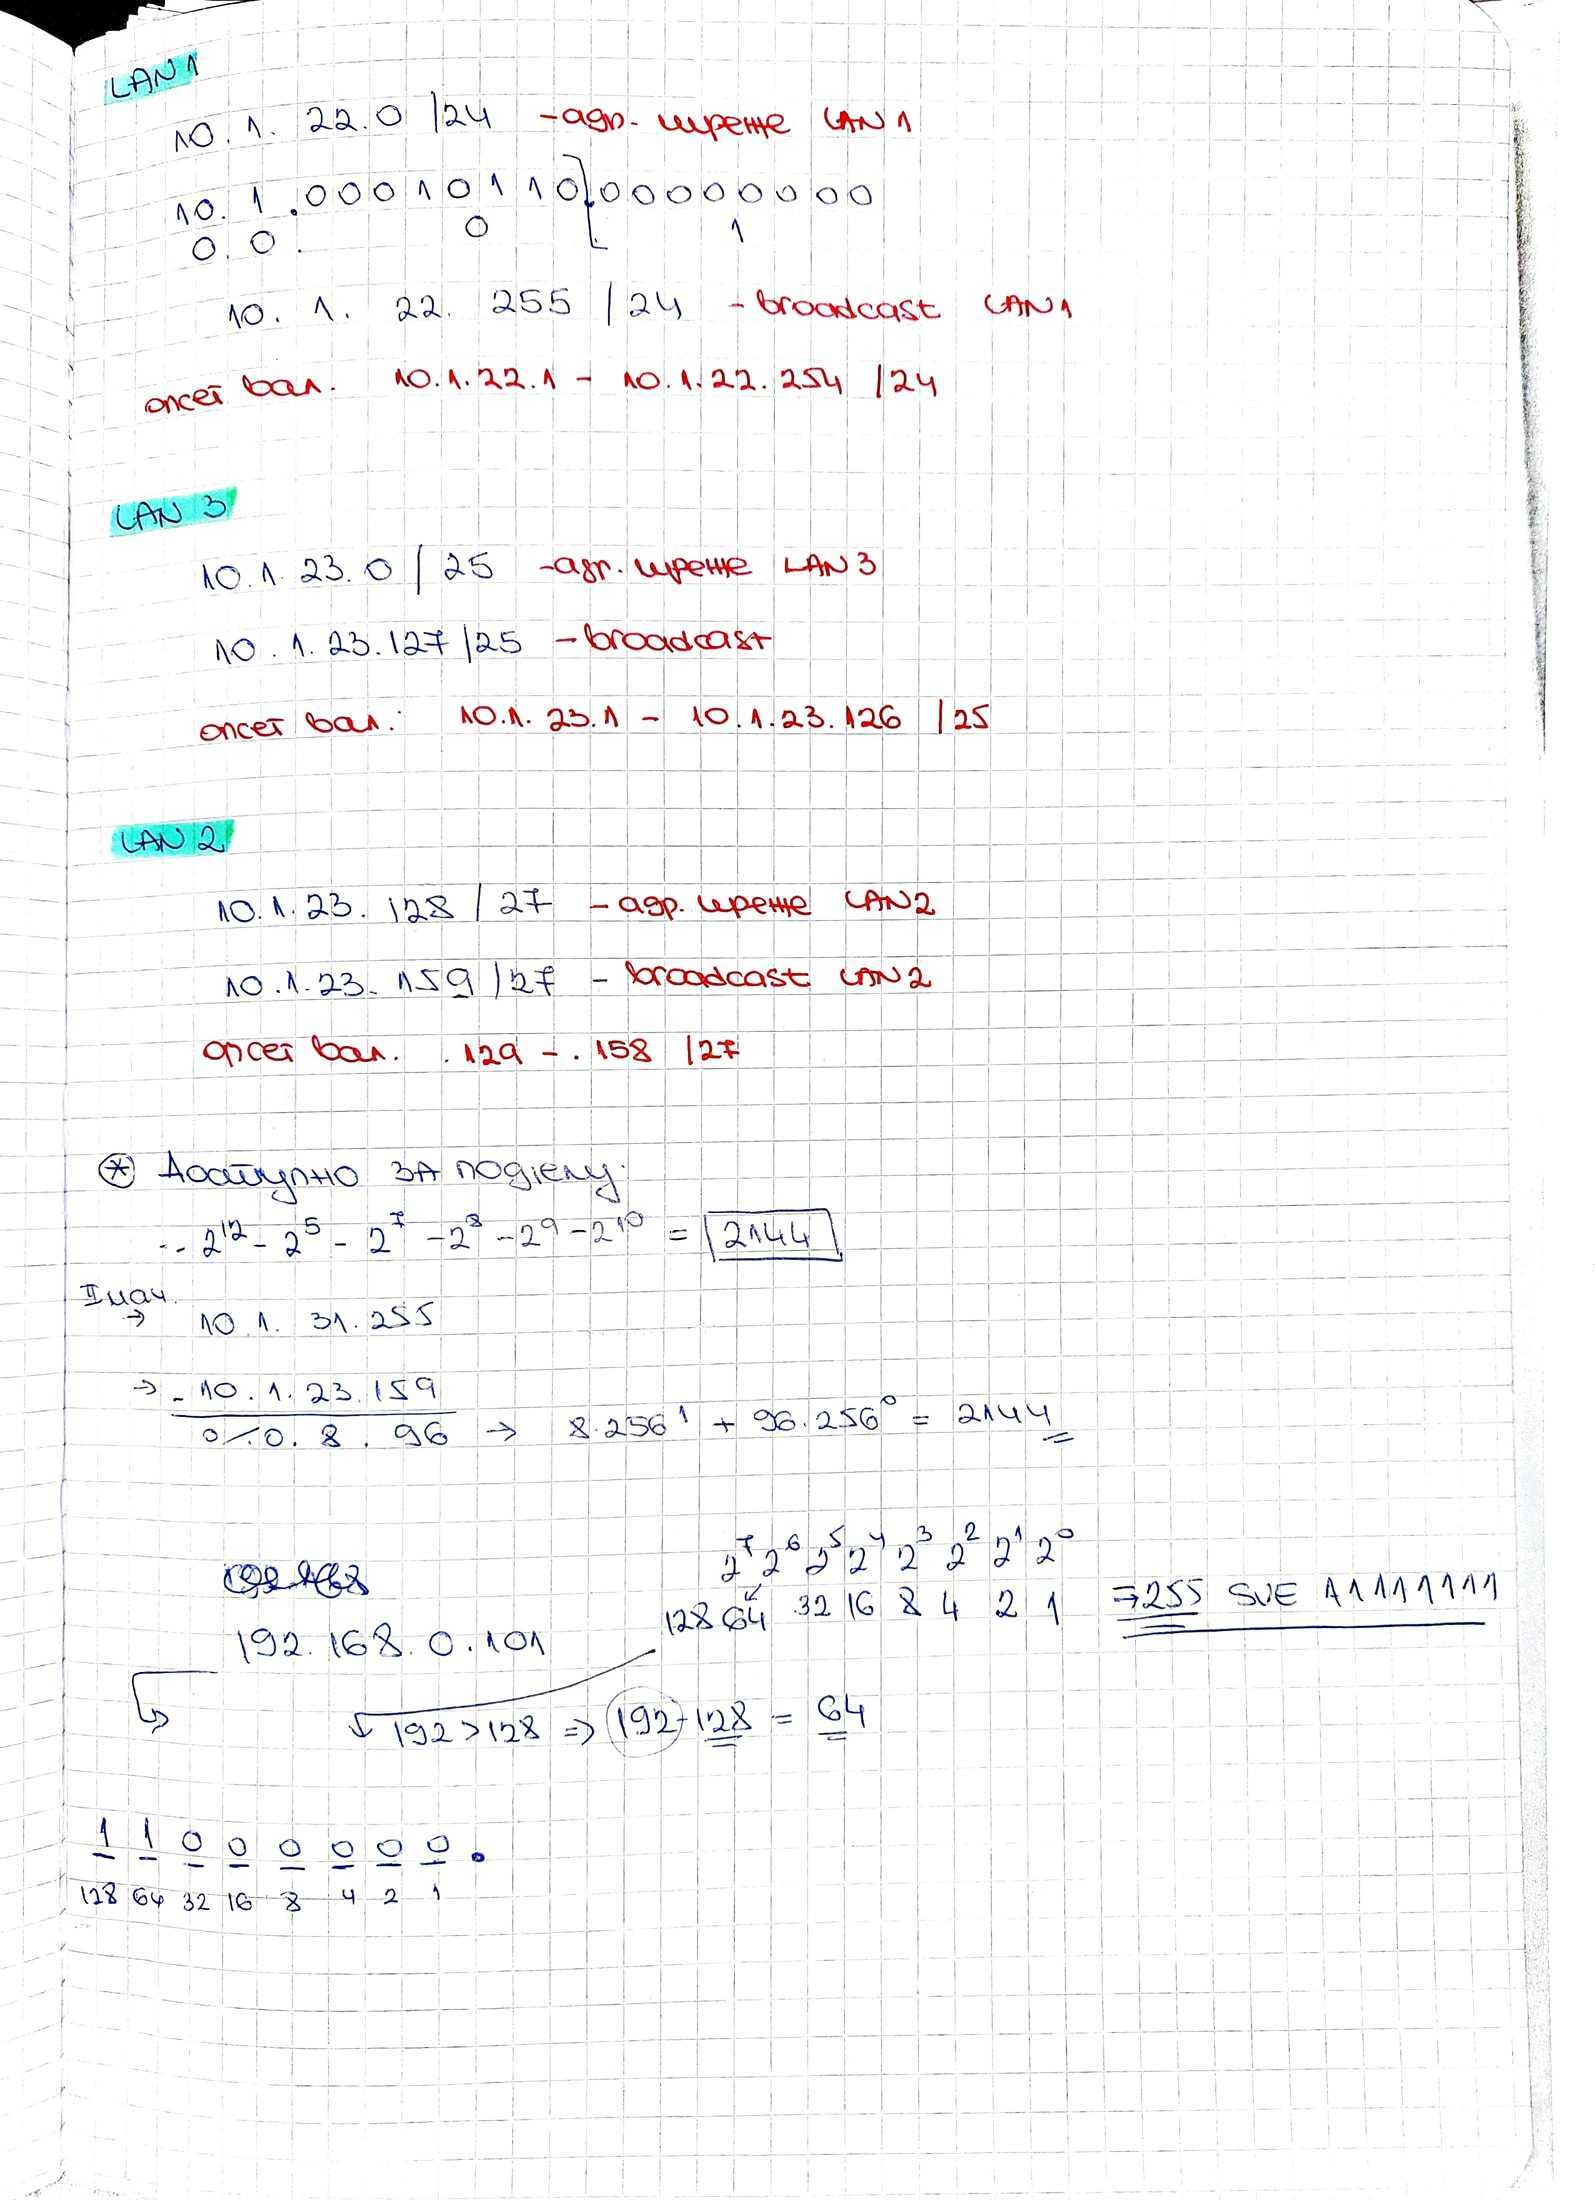 LAN 1
10. 1. 22.0 /24 - адр. мреже LAN 1
10. 1 .00010110.00000000
0. 0. 0 1
10. 1. 22. 255 / 24 - broadcast LAN1
опсег вал. 10.1.22.1 - 10.1.22.254 /24
LAN 3
10.1.23.0 / 25 - адр. мреже LAN 3
10.1.23.127 /25 - broadcast
опсег вал.: 10.1.23.1 - 10.1.23.126 /25
LAN 2
10.1.23.128 / 27 - адр. мреже LAN2
10.1.23.159 /27 - broadcast LAN2
опсег вал. .129 - .158 /27
* Доступно ЗА подјелу:
.. 2¹² - 2⁵ - 2⁷ - 2⁸ - 2⁹ - 2¹⁰ = 2144
II нач.
→ 10.1. 31.255
→ - 10.1.23.159
0.0. 8. 96 → 8·256¹ + 96·256⁰ = 2144
2⁷ 2⁶ 2⁵ 2⁴ 2³ 2² 2¹ 2⁰
128 64 32 16 8 4 2 1 ⇒ 255 SVE 11111111
192.168.0.101
192 > 128 ⇒ 192 - 128 = 64
1 1 0 0 0 0 0 0 .
128 64 32 16 8 4 2 1